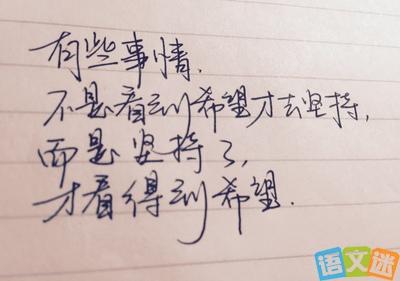 有些事情.
不是看到希望才去坚持,
而是坚持了,
才看得到希望.
语文迷